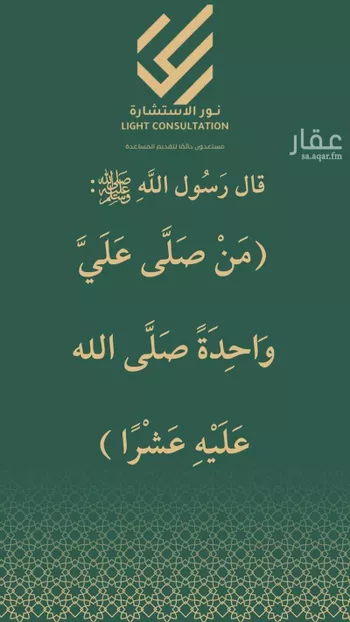 نور الاستشارة
LIGHT CONSULTATION
مستعدون دائمًا لتقديم المساعدة
عقار
sa.aqar.fm
قال رَسُول اللَّهِ ﷺ:
(مَنْ صَلَّى عَلَيَّ
وَاحِدَةً صَلَّى الله
عَلَيْهِ عَشْرًا )